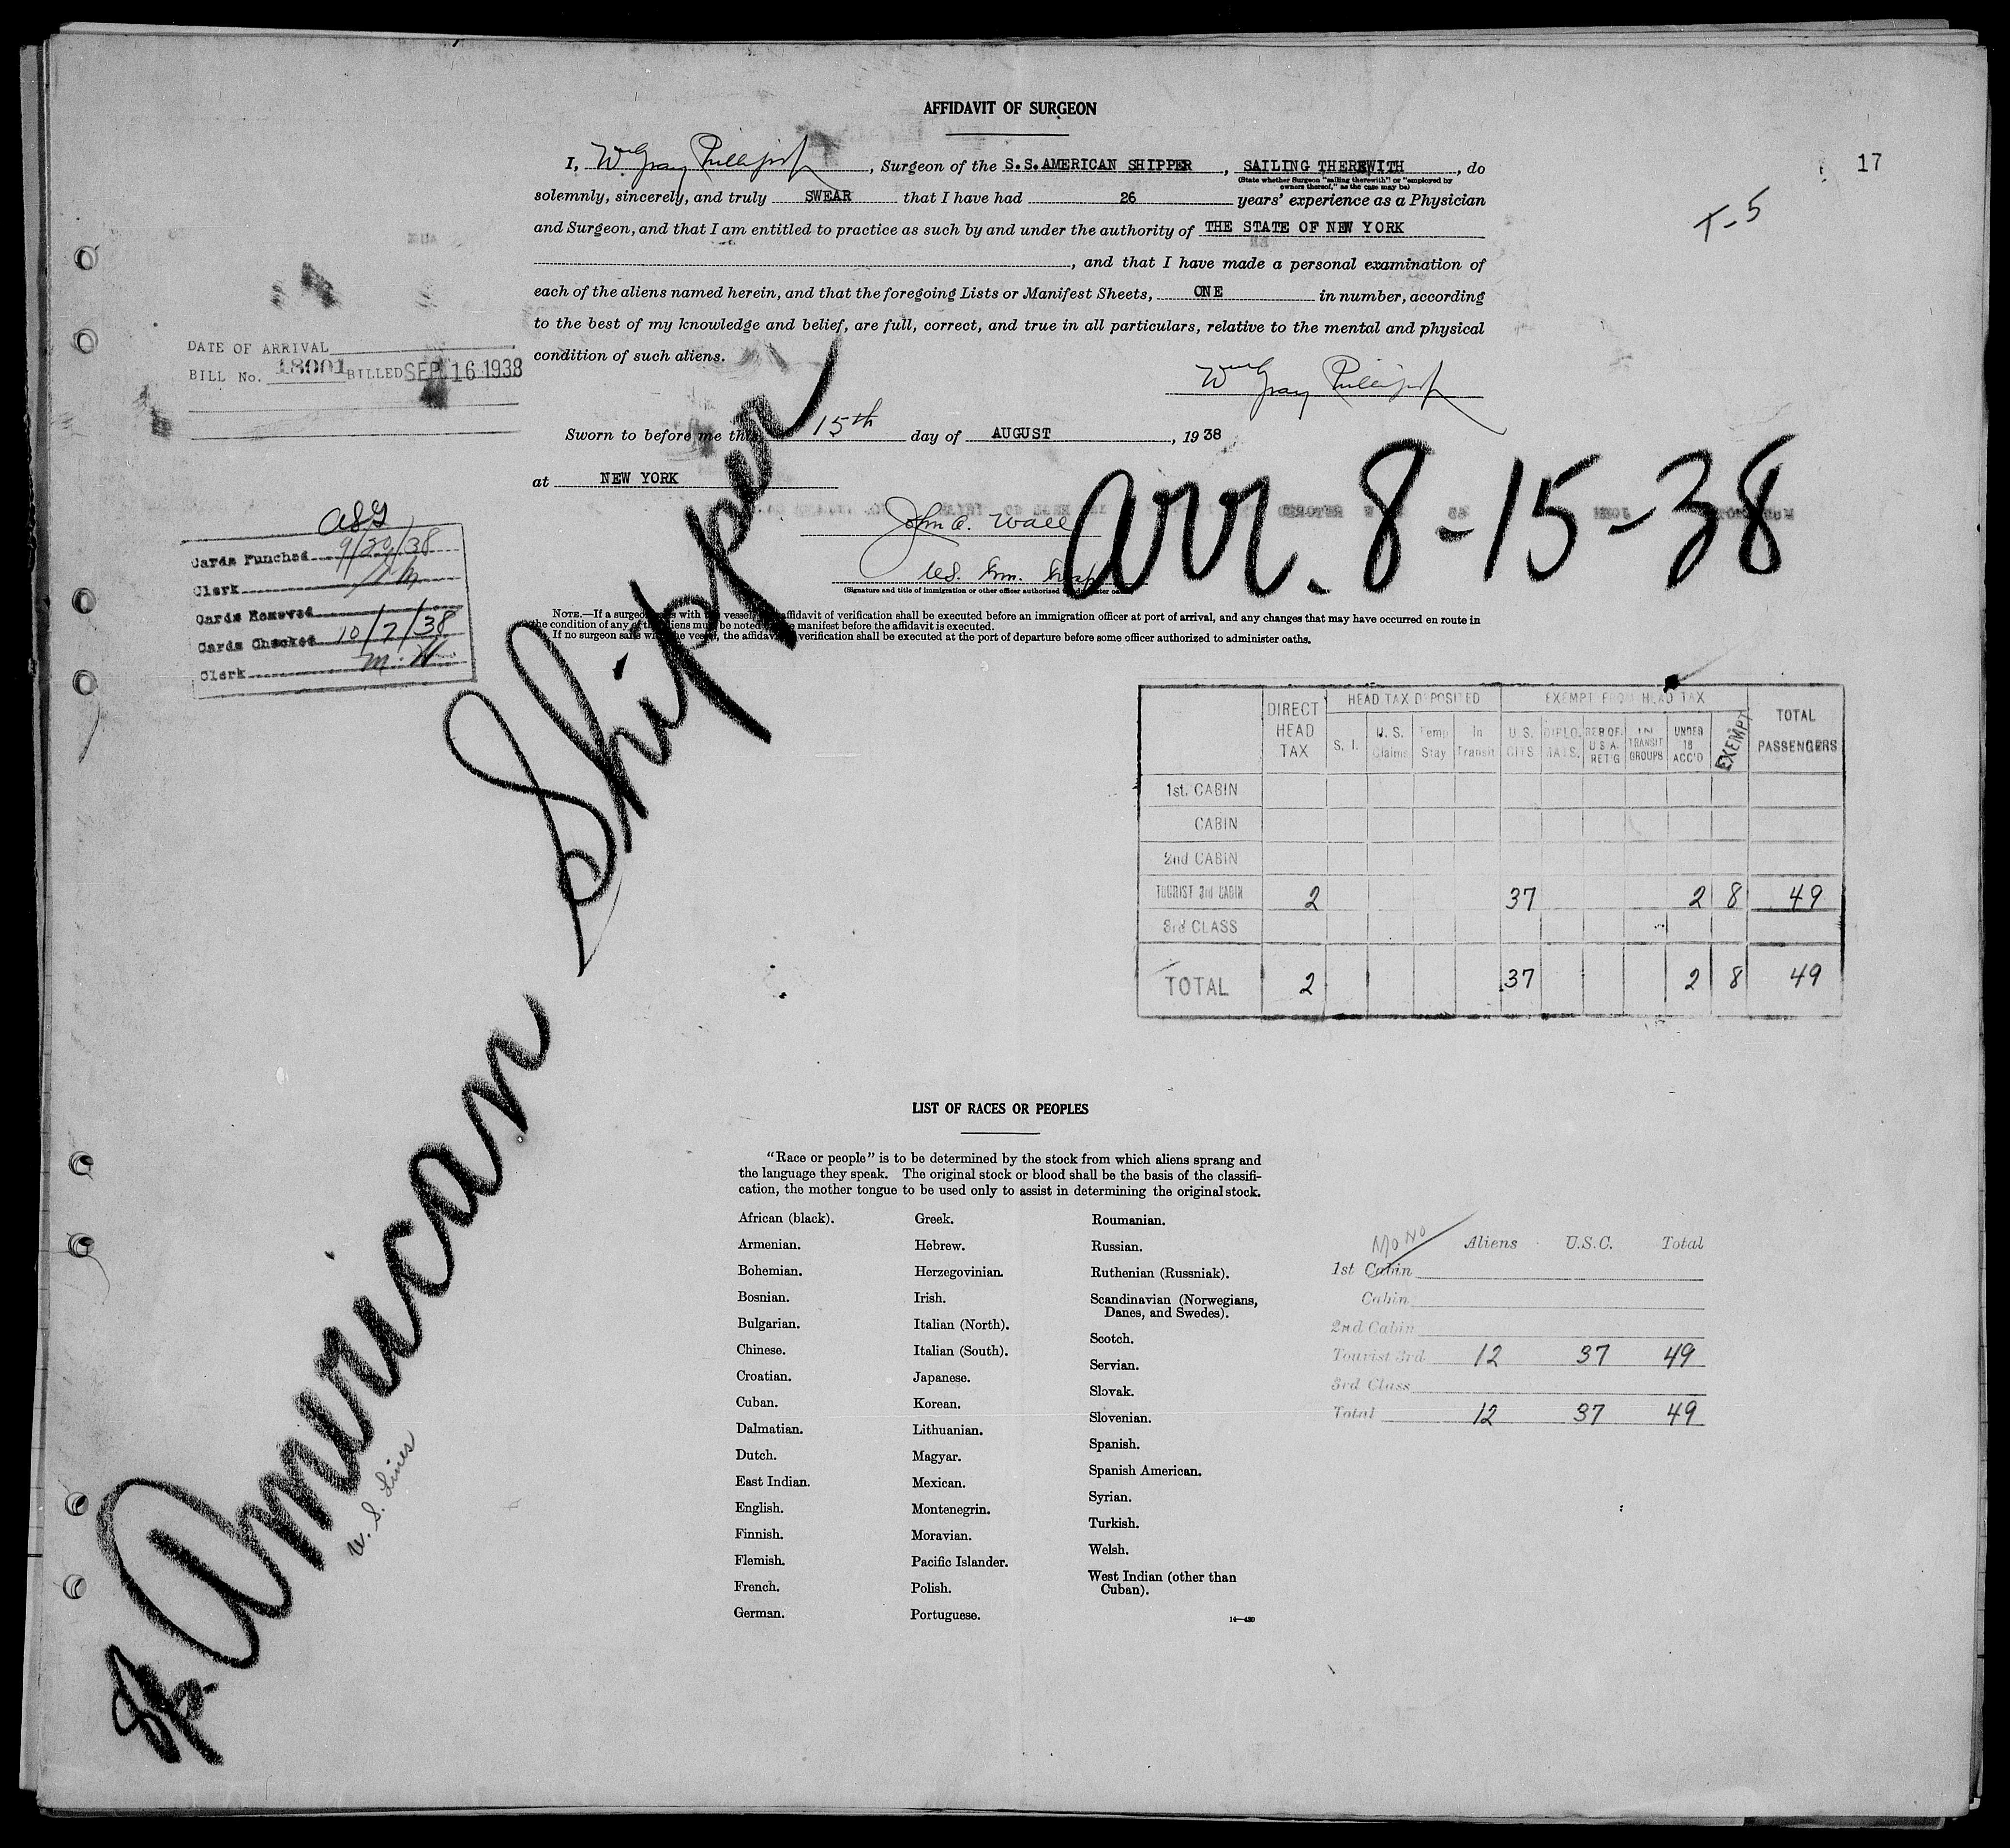 AFFIDAVIT OF SURGEON
17
I, Wm Gray, Surgeon of the S.S. AMERICAN SHIPPER, SAILING THEREWITH, do
(State whether Surgeon "sailing therewith" or "employed by
owners thereof," as the case may be)
solemnly, sincerely, and truly SWEAR that I have had 26 years' experience as a Physician
T-5
and Surgeon, and that I am entitled to practice as such by and under the authority of THE STATE OF NEW YORK
, and that I have made a personal examination of
each of the aliens named herein, and that the foregoing Lists or Manifest Sheets, ONE in number, according
to the best of my knowledge and belief, are full, correct, and true in all particulars, relative to the mental and physical
condition of such aliens.
DATE OF ARRIVAL
BILL No. 18001 BILLED SEP 16 1938
Wm Gray
Sworn to before me this 15th day of AUGUST, 1938
at NEW YORK
arr. 8-15-38
John A. Wall
U.S. Imm. Insp
(Signature and title of immigration or other officer authorized to administer oaths)
NOTE.—If a surgeon sails with the vessel, the affidavit of verification shall be executed before an immigration officer at port of arrival, and any changes that may have occurred en route in
the condition of any of the aliens must be noted on the manifest before the affidavit is executed.
If no surgeon sails with the vessel, the affidavit of verification shall be executed at the port of departure before some officer authorized to administer oaths.
Cards Punched 9/29/38
Clerk
Cards Removed
Cards Checked 10/7/38
Clerk M. W.
Sp. American Shipper
U. S. Lines
DIRECT HEAD TAX
HEAD TAX DEPOSITED
EXEMPT FROM HEAD TAX
TOTAL PASSENGERS
S. I.
U. S. Claims
Temp Stay
In Transit
U. S. CITS
DIPLOMATS.
RES OF U S A. RET'G
IN TRANSIT GROUPS
UNDER 16 ACC'D
EXEMPT
1st. CABIN
CABIN
2nd CABIN
TOURIST 3rd CABIN 2 37 2 8 49
3rd CLASS
TOTAL 2 37 2 8 49
LIST OF RACES OR PEOPLES
"Race or people" is to be determined by the stock from which aliens sprang and
the language they speak. The original stock or blood shall be the basis of the classifi-
cation, the mother tongue to be used only to assist in determining the original stock.
African (black).
Armenian.
Bohemian.
Bosnian.
Bulgarian.
Chinese.
Croatian.
Cuban.
Dalmatian.
Dutch.
East Indian.
English.
Finnish.
Flemish.
French.
German.
Greek.
Hebrew.
Herzegovinian.
Irish.
Italian (North).
Italian (South).
Japanese.
Korean.
Lithuanian.
Magyar.
Mexican.
Montenegrin.
Moravian.
Pacific Islander.
Polish.
Portuguese.
Roumanian.
Russian.
Ruthenian (Russniak).
Scandinavian (Norwegians,
Danes, and Swedes).
Scotch.
Servian.
Slovak.
Slovenian.
Spanish.
Spanish American.
Syrian.
Turkish.
Welsh.
West Indian (other than
Cuban).
14—430
Aliens U.S.C. Total
1st Cabin
Cabin
2nd Cabin
Tourist 3rd 12 37 49
3rd Class
Total 12 37 49